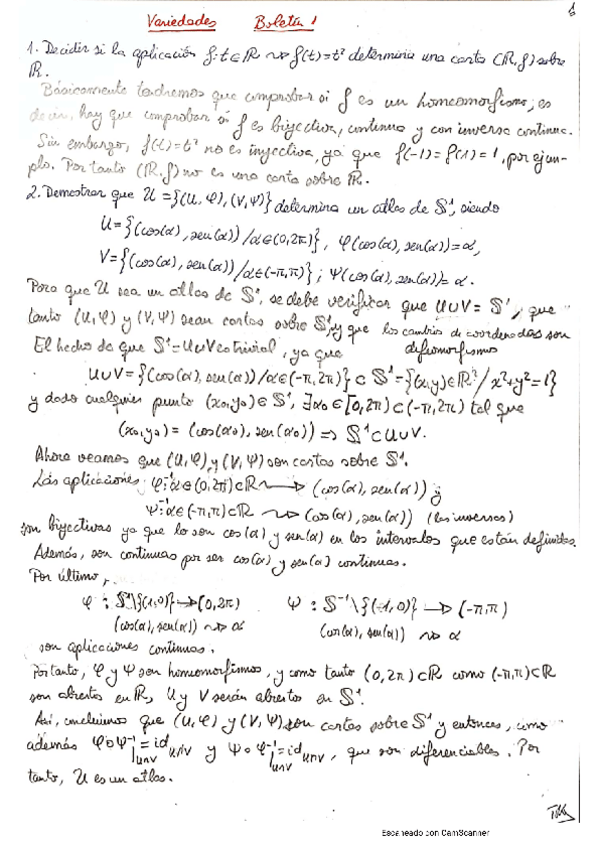 Variedades Boletín 1
1
1. Decidir si la aplicación f: t∈ℝ ⇝ f(t)=t² determina una carta (ℝ, f) sobre
ℝ.
Básicamente tendremos que comprobar si f es un homeomorfismo; es
decir, hay que comprobar si f es biyectiva, continua y con inversa continua.
Sin embargo, f(t)=t² no es inyectiva, ya que f(-1)=f(1)=1, por ejem-
plo. Por tanto (ℝ, f) no es una carta sobre ℝ.
2. Demostrar que U={(U, φ), (V, Ψ)} determina un atlas de S¹, siendo
U={(cos(α), sen(α)) / α∈(0,2π)}, φ(cos(α), sen(α))=α,
V={(cos(α), sen(α)) / α∈(-π,π)}; Ψ(cos(α), sen(α))=α.
Para que U sea un atlas de S¹, se debe verificar que U∪V= S¹, que
tanto (U, φ) y (V, Ψ) sean cartas sobre S¹ y que los cambios de coordenadas son
difeomorfismo
El hecho de que S¹=U∪V es trivial, ya que
U∪V={(cos(α), sen(α)) / α∈(-π,2π)} ⊂ S¹={(x,y)∈ℝ² / x²+y²=1}
y dado cualquier punto (x₀,y₀)∈S¹, ∃α₀∈[0,2π)⊂(-π,2π) tal que
(x₀,y₀)=(cos(α₀), sen(α₀)) ⇒ S¹⊂U∪V.
Ahora veamos que (U, φ) y (V, Ψ) son cartas sobre S¹.
Las aplicaciones φ⁻¹: α∈(0,2π)⊂ℝ ⇝ (cos(α), sen(α)) y
Ψ⁻¹: α∈(-π,π)⊂ℝ ⇝ (cos(α), sen(α)) (las inversas)
son biyectivas ya que lo son cos(α) y sen(α) en los intervalos que están definidas.
Además, son continuas por ser cos(α) y sen(α) continuas.
Por último,
φ: S¹\{(1,0)} → (0,2π) Ψ: S¹\{(-1,0)} → (-π,π)
(cos(α), sen(α)) ⇝ α (cos(α), sen(α)) ⇝ α
son aplicaciones continuas.
Por tanto, φ y Ψ son homeomorfismos, y como tanto (0,2π)⊂ℝ como (-π,π)⊂ℝ
son abiertos en ℝ, U y V serán abiertos en S¹.
Así, concluimos que (U, φ) y (V, Ψ) son cartas sobre S¹ y entonces, como
además φ∘Ψ⁻¹|U∩V = id U∩V y Ψ∘φ⁻¹|U∩V = id U∩V, que son diferenciables. Por
tanto, U es un atlas.
Escaneado con CamScanner